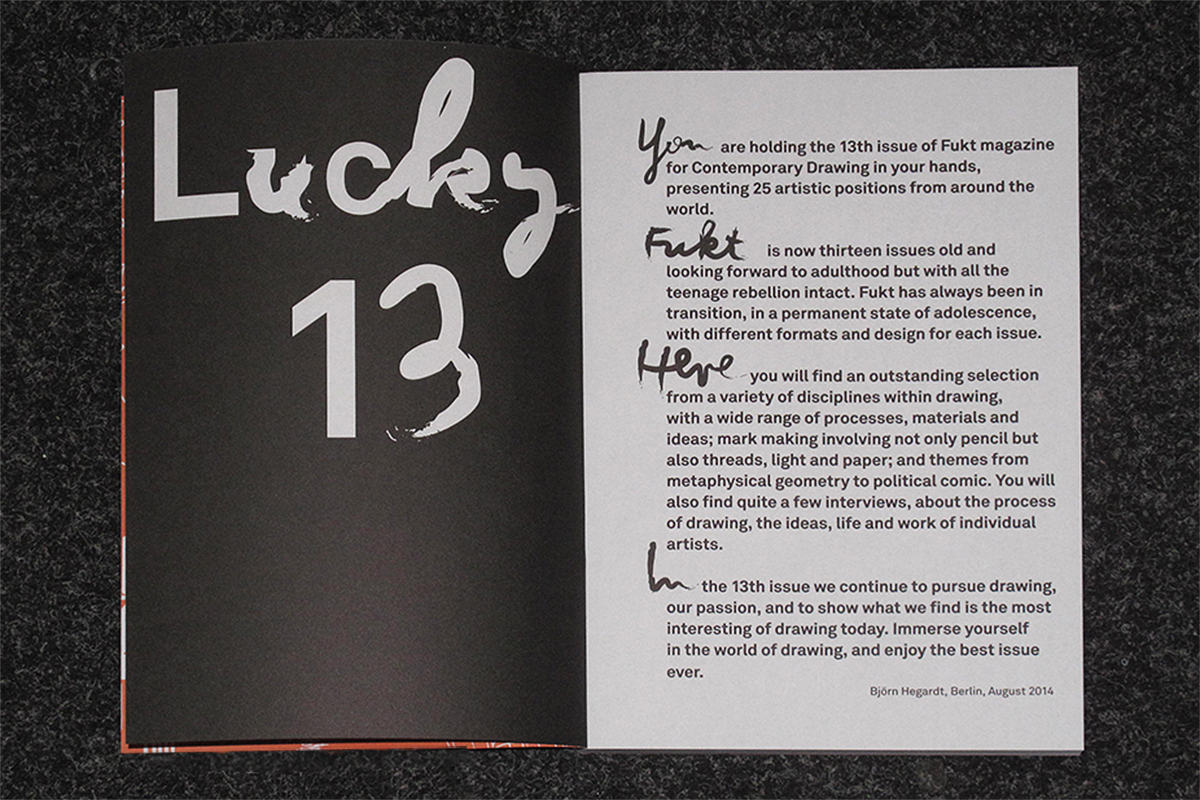 Lucky
13
You are holding the 13th issue of Fukt magazine
for Contemporary Drawing in your hands,
presenting 25 artistic positions from around the
world.
Fukt is now thirteen issues old and
looking forward to adulthood but with all the
teenage rebellion intact. Fukt has always been in
transition, in a permanent state of adolescence,
with different formats and design for each issue.
Here you will find an outstanding selection
from a variety of disciplines within drawing,
with a wide range of processes, materials and
ideas; mark making involving not only pencil but
also threads, light and paper; and themes from
metaphysical geometry to political comic. You will
also find quite a few interviews, about the process
of drawing, the ideas, life and work of individual
artists.
In the 13th issue we continue to pursue drawing,
our passion, and to show what we find is the most
interesting of drawing today. Immerse yourself
in the world of drawing, and enjoy the best issue
ever.
Björn Hegardt, Berlin, August 2014